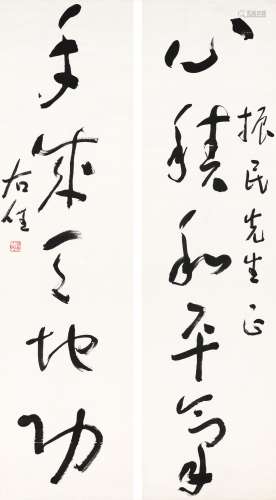 心積和平氣
振民先生正
手成天地功
右任